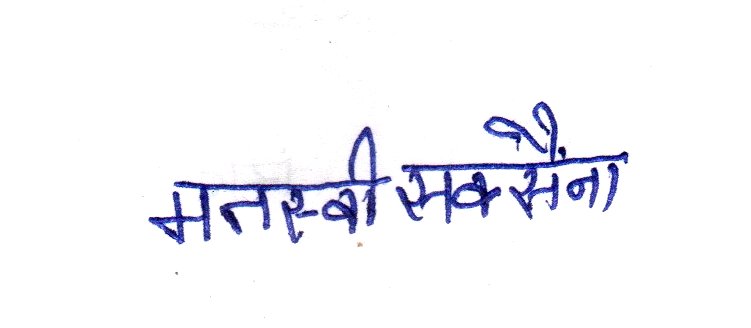 मनस्वी सक्सैंना